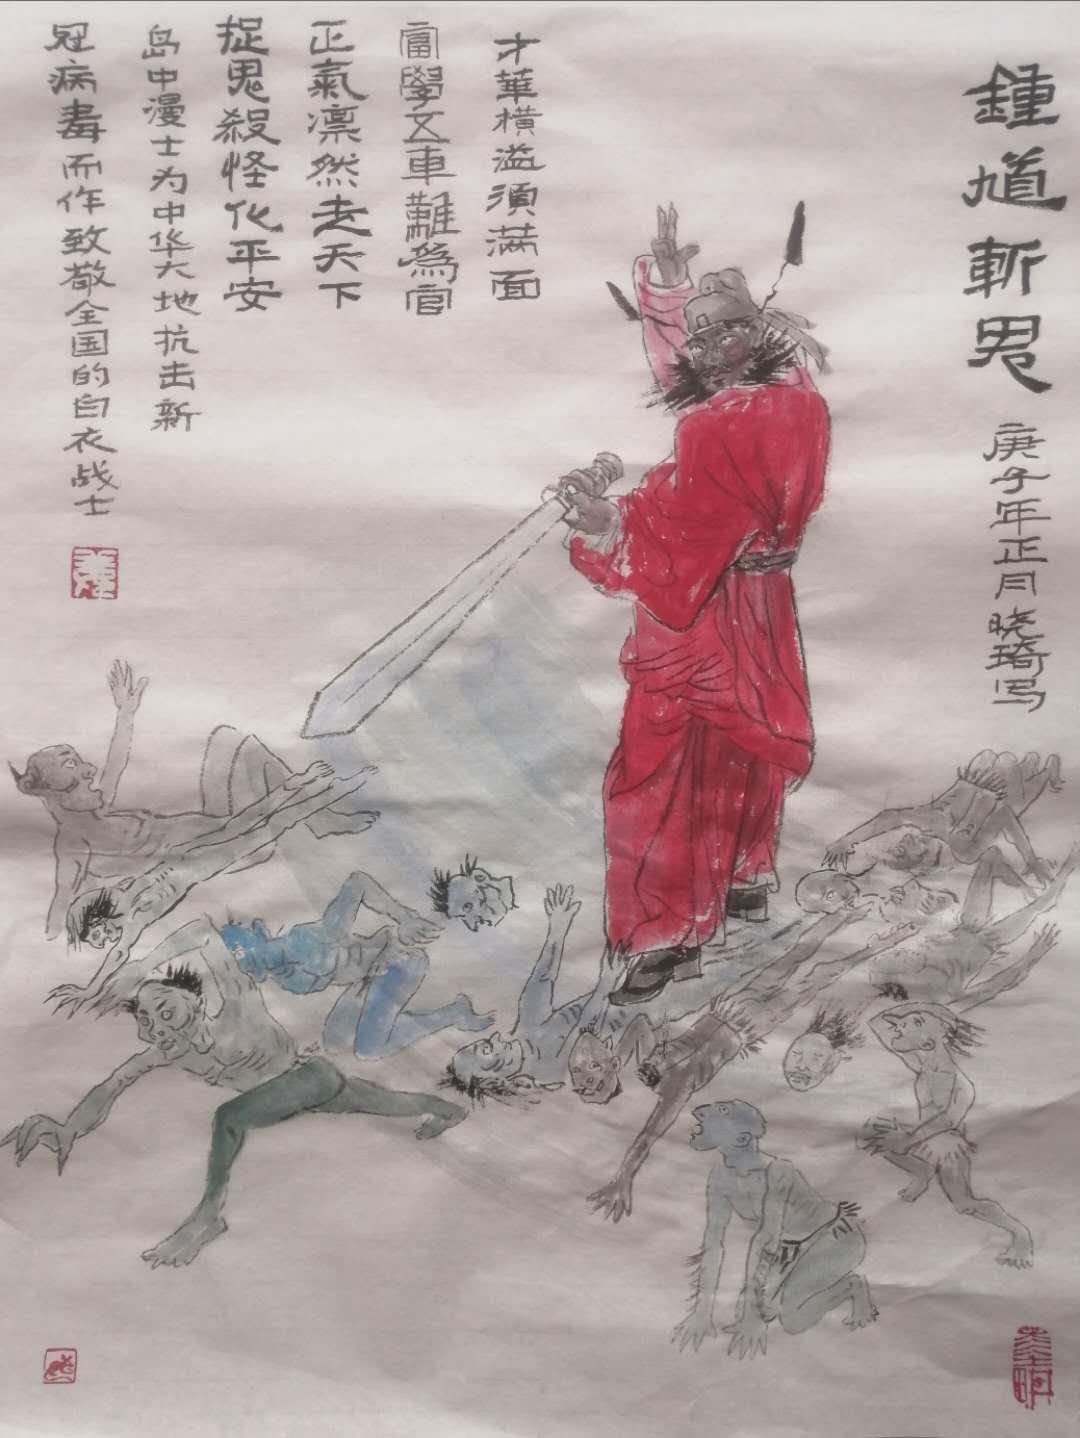 鍾馗斬鬼
庚子年正月晓琦写
才華橫溢須满面
富學五車難爲官
正氣凛然去天下
捉鬼殺怪化平安
岛中漫士为中华大地抗击新
冠病毒而作致敬全国的白衣战士